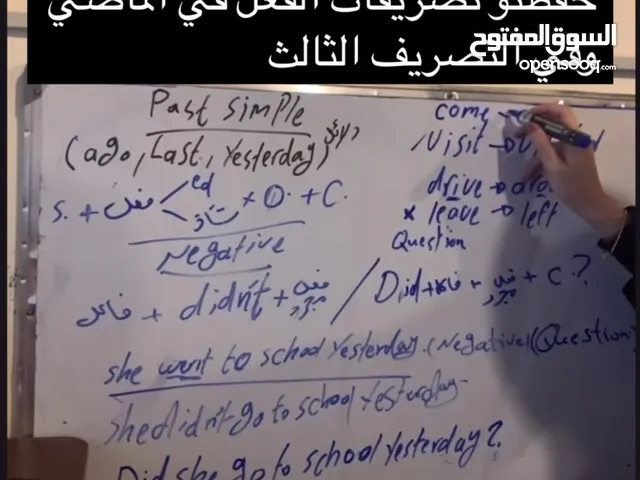 حفظتو تصريفات الفعل في الماضي
وفي التصريف الثالث
السوق المفتوح
opensooq.com
Past simple
(ago, Last, Yesterday)
S. + فعل ed شاذ + O. + C.
come
Visit →
drive →
x leave → left
Negative
Question
فاعل + didn't + فعل مجرد / Did + فاعل + فعل مجرد + C. ?
she went to school Yesterday. (Negative) (Question)
She didn't go to school Yesterday.
Did she go to school Yesterday?